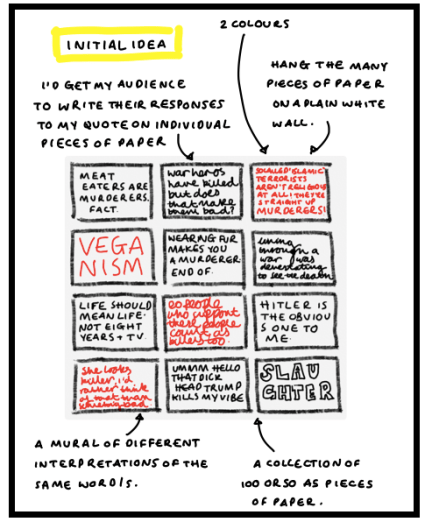 2 COLOURS
INITIAL IDEA
I'D GET MY AUDIENCE
TO WRITE THEIR RESPONSES
TO MY QUOTE ON INDIVIDUAL
PIECES OF PAPER
HANG THE MANY
PIECES OF PAPER
ON A PLAIN WHITE
WALL.
MEAT
EATERS ARE
MURDERERS.
FACT.
war heros
have killed
but does
that make
them bad?
SOCALLED 'ISLAMIC'
TERRORISTS
AREN'T RELIGIOUS
AT ALL! THEY'RE
STRAIGHT UP
MURDERERS!
VEGA
NISM
WEARING FUR
MAKES YOU
A MURDERER
END OF.
living
through a
war was
devastating
to see the death
LIFE SHOULD
MEAN LIFE.
NOT EIGHT
YEARS + TV.
do people
who support
these people
count as
killers too.
HITLER IS
THE OBVIOU
S ONE TO
ME.
She looks
killer, i'd
rather think
of that than
UMMM HELLO
THAT DICK
HEAD TRUMP
KILLS MY VIBE
SLAU
GHTER
A MURAL OF DIFFERENT
INTERPRETATIONS OF THE
SAME WORD/S.
A COLLECTION OF
100 OR SO A5 PIECES
OF PAPER.